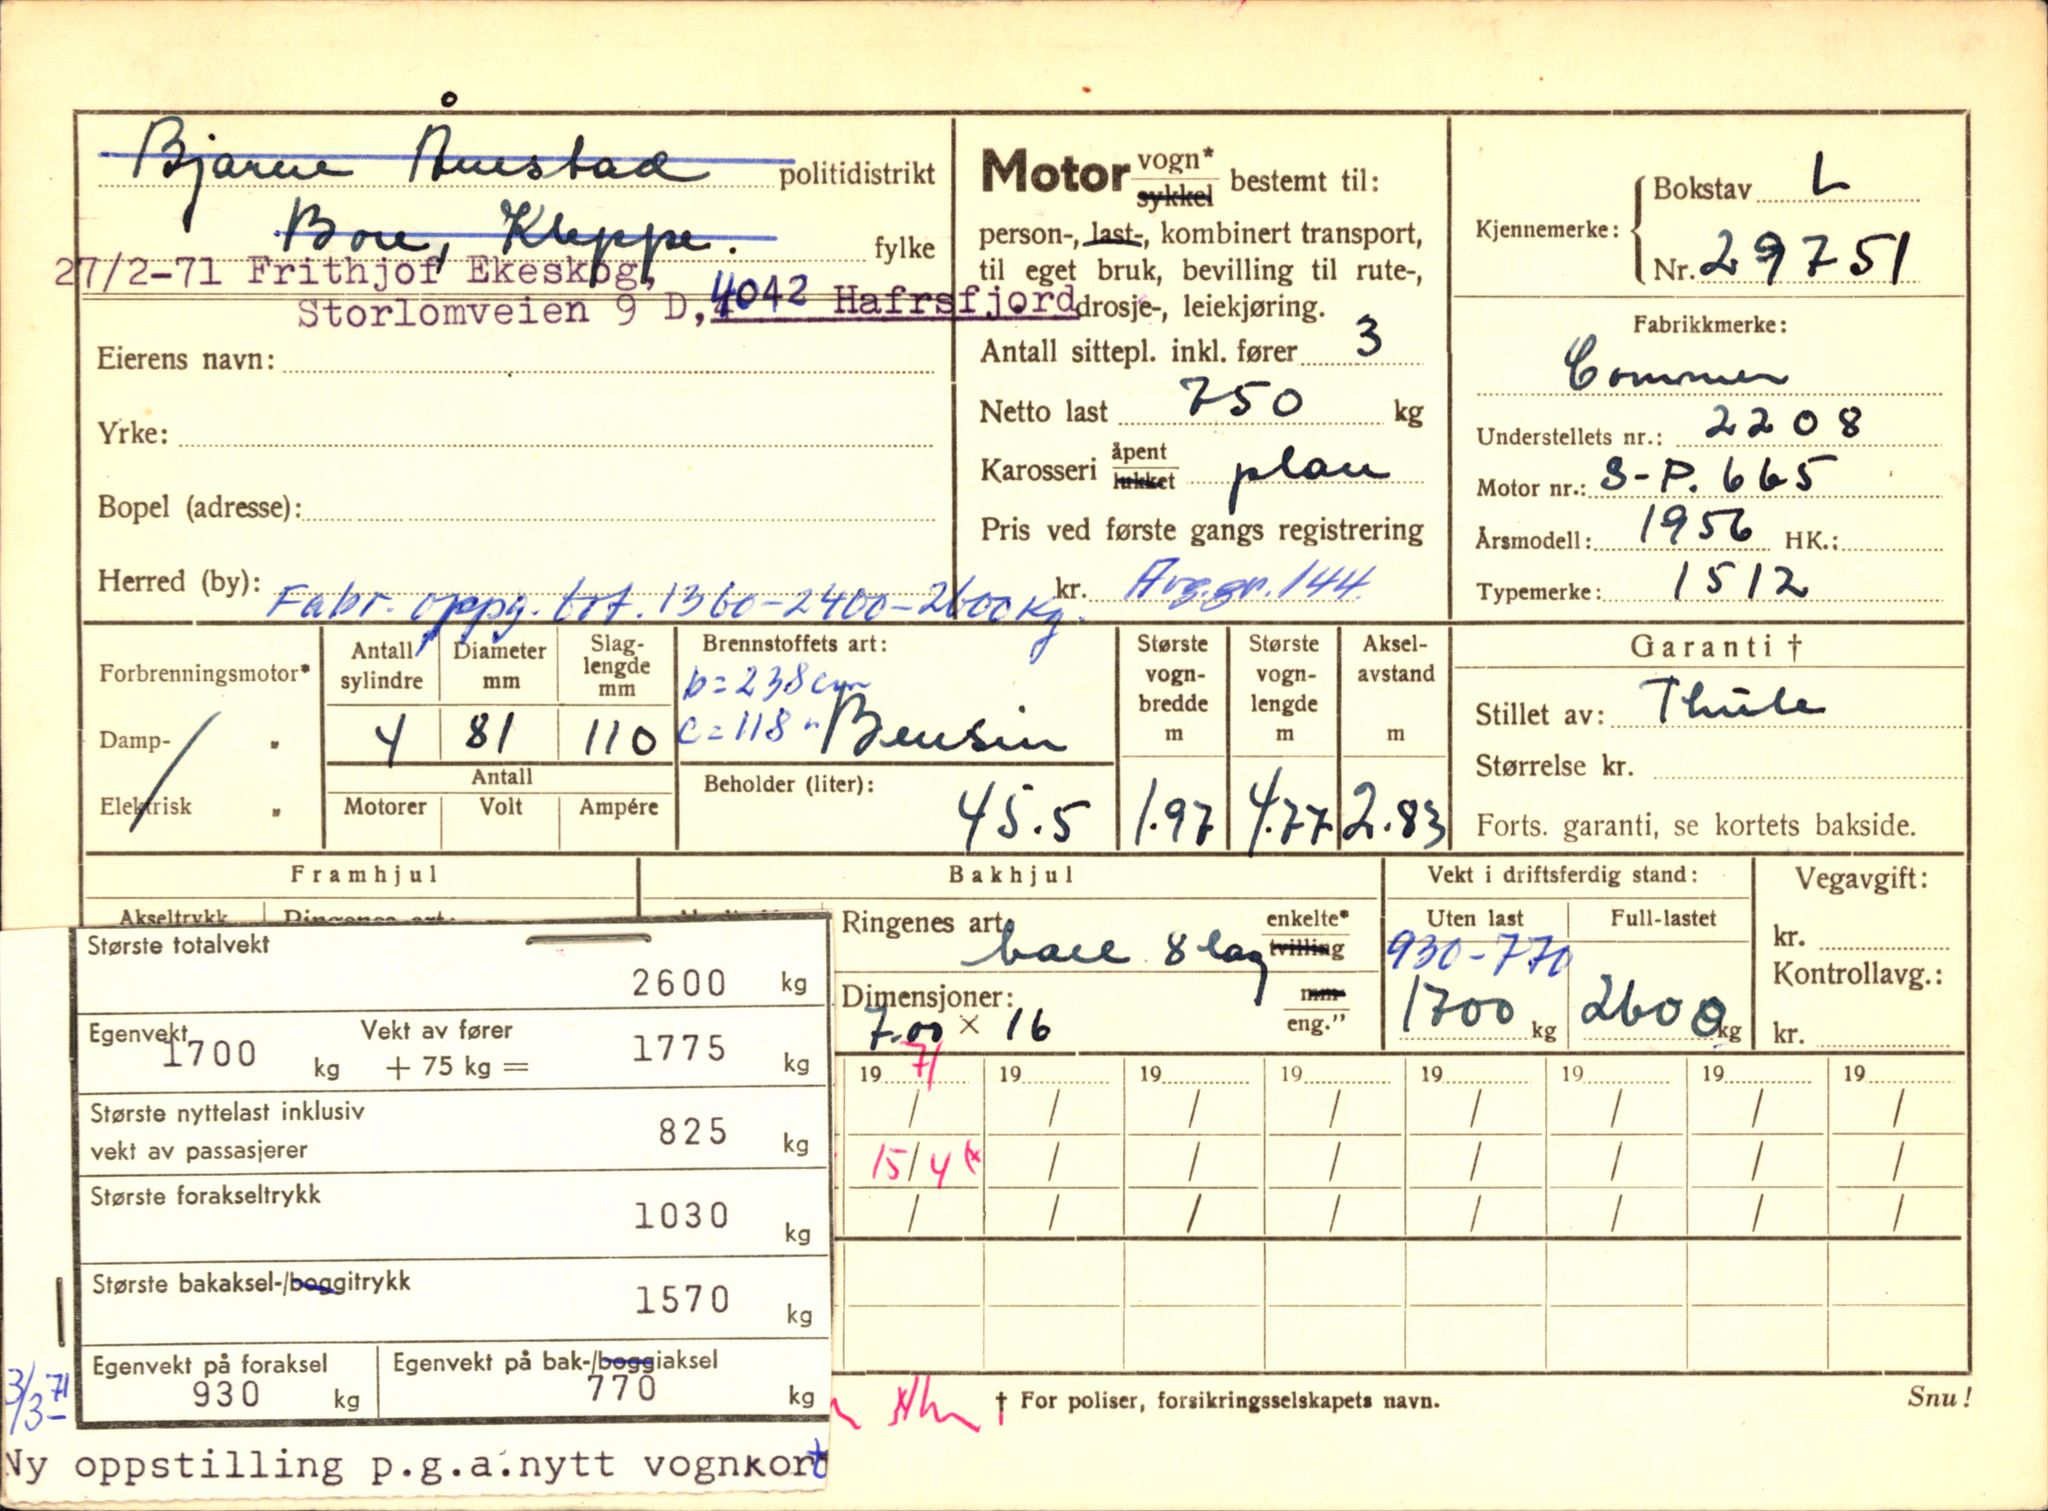 Bjarne Ånestad politidistrikt
Bore, Kleppe. fylke
27/2-71 Frithjof Ekeskog,
Storlomveien 9 D, 4042 Hafrsfjord
Eierens navn:
Yrke:
Bopel (adresse):
Herred (by):
Fabr. oppg. tot. 1360-2400-2600 kg.
Motor vogn* sykkel bestemt til:
person-, last-, kombinert transport,
til eget bruk, bevilling til rute-,
drosje-, leiekjøring.
Antall sittepl. inkl. fører 3
Netto last 750 kg
Karosseri åpent lukket plan
Pris ved første gangs registrering
kr. Avg.gr. 144
Kjennemerke: Bokstav L
Nr. 29751
Fabrikkmerke:
Commer
Understellets nr.: 2208
Motor nr.: S-P. 665
Årsmodell: 1956 HK.:
Typemerke: 1512
Forbrenningsmotor*
Damp- „
Elektrisk „
Antall sylindre
4
Diameter mm
81
Slag-lengde mm
110
Antall
Motorer Volt Ampére
Brennstoffets art:
b = 238 cm
c = 118 " Bensin
Beholder (liter):
45.5
Største vogn-bredde m
1.97
Største vogn-lengde m
4.77
Aksel-avstand m
2.83
Garanti †
Stillet av: Thule
Størrelse kr.
Forts. garanti, se kortets bakside.
Framhjul
Akseltrykk Ringenes art:
Bakhjul
Ringenes art ball 8 lag enkelte* tvilling
Dimensjoner: 7.00 × 16 mm eng."
Vekt i driftsferdig stand:
Uten last Full-lastet
930-770
1700 kg 2600 kg
Vegavgift:
kr.
Kontrollavg.:
kr.
19 71 19 19 19 19 19 19 19
/ / / / / / / /
15/4 / / / / / / /
/ / / / / / / /
Største totalvekt
2600 kg
Egenvekt 1700 kg Vekt av fører + 75 kg = 1775 kg
Største nyttelast inklusiv
vekt av passasjerer 825 kg
Største forakseltrykk
1030 kg
Største bakaksel-/boggitrykk
1570 kg
Egenvekt på foraksel
930 kg
Egenvekt på bak-/boggiaksel
770 kg
3/3-71
Ny oppstilling p.g.a. nytt vognkort
† For poliser, forsikringsselskapets navn.
Snu!